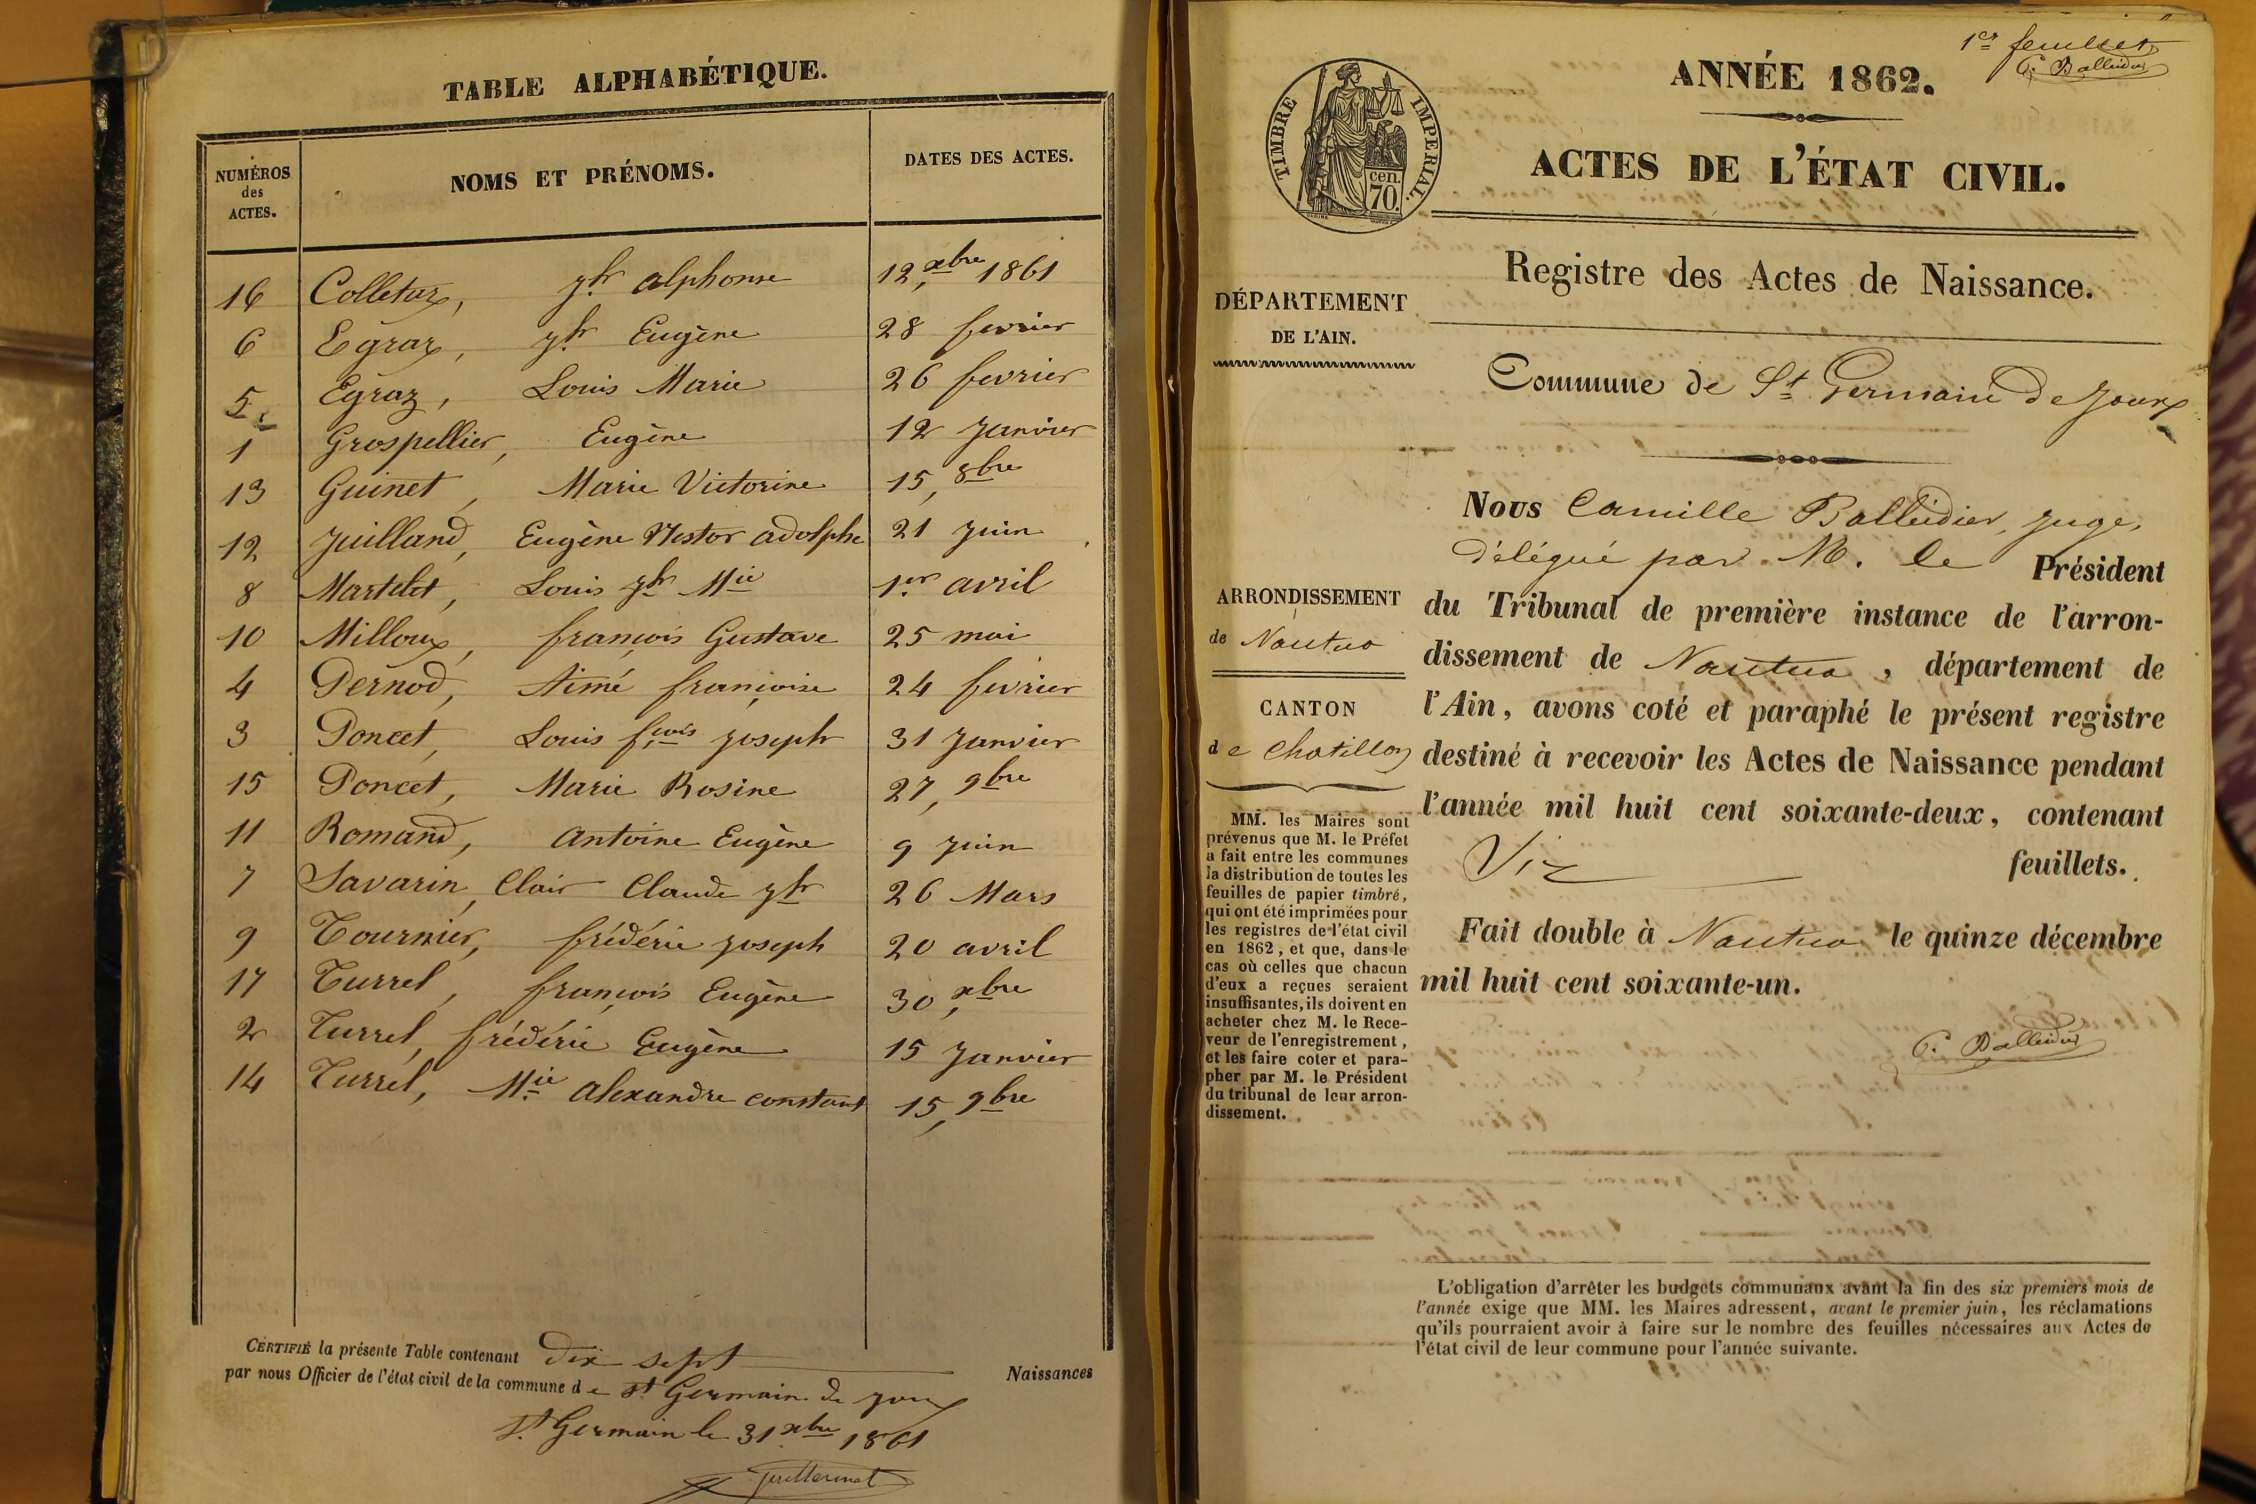 TABLE ALPHABÉTIQUE.
NUMÉROS des ACTES.
NOMS ET PRÉNOMS.
DATES DES ACTES.
16 Colletaz, jh alphonse 12, xbre 1861
6 Egraz, jh Eugène 28 fevrier
5 Egraz, Louis Marie 26 fevrier
1 Grospellier, Eugène 12 Janvier
13 Guinet, Marie Victorine 15, 8bre
12 Juilland, Eugène Nestor adolphe 21 Juin
8 Martelet, Louis jh Mie 1er avril
10 Milloux, françois Gustave 25 mai
4 Pernod, Aimé françoise 24 fevrier
3 Poncet, Louis fcois Joseph 31 Janvier
15 Poncet, Marie Rosine 27, 9bre
11 Romand, antoine Eugène 9 Juin
7 Savarin, Clair Claude jh 26 Mars
9 Tournier, frédéric Joseph 20 avril
17 Turrel, françois Eugène 30, xbre
2 Turrel, frédéric Eugène 15 Janvier
14 Turrel, Mie alexandre constant 15, 9bre
CERTIFIÉ la présente Table contenant dix sept Naissances
par nous Officier de l'état civil de la commune de St Germain de Joux
St Germain le 31 xbre 1861
1er feuillet
C. Balleidier
TIMBRE IMPERIAL.
cen. 70.
ANNÉE 1862.
ACTES DE L'ÉTAT CIVIL.
Registre des Actes de Naissance.
DÉPARTEMENT
DE L'AIN.
Commune de St Germain De Joux
ARRONDISSEMENT
de Nantua
CANTON
de Chatillon
MM. les Maires sont
prévenus que M. le Préfet
a fait entre les communes
la distribution de toutes les
feuilles de papier timbré,
qui ont été imprimées pour
les registres de l'état civil
en 1862, et que, dans le
cas où celles que chacun
d'eux a reçues seraient
insuffisantes, ils doivent en
acheter chez M. le Rece-
veur de l'enregistrement,
et les faire coter et para-
pher par M. le Président
du tribunal de leur arron-
dissement.
Nous Camille Balleidier, Juge,
délégué par M. le Président
du Tribunal de première instance de l'arron-
dissement de Nantua, département de
l'Ain, avons coté et paraphé le présent registre
destiné à recevoir les Actes de Naissance pendant
l'année mil huit cent soixante-deux, contenant
Six feuillets.
Fait double à Nantua le quinze décembre
mil huit cent soixante-un.
C. Balleidier
L'obligation d'arrêter les budgets communaux avant la fin des six premiers mois de
l'année exige que MM. les Maires adressent, avant le premier juin, les réclamations
qu'ils pourraient avoir à faire sur le nombre des feuilles nécessaires aux Actes de
l'état civil de leur commune pour l'année suivante.